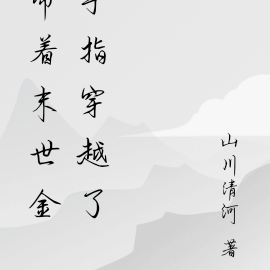 着末世金
指穿越了
山川清河 著